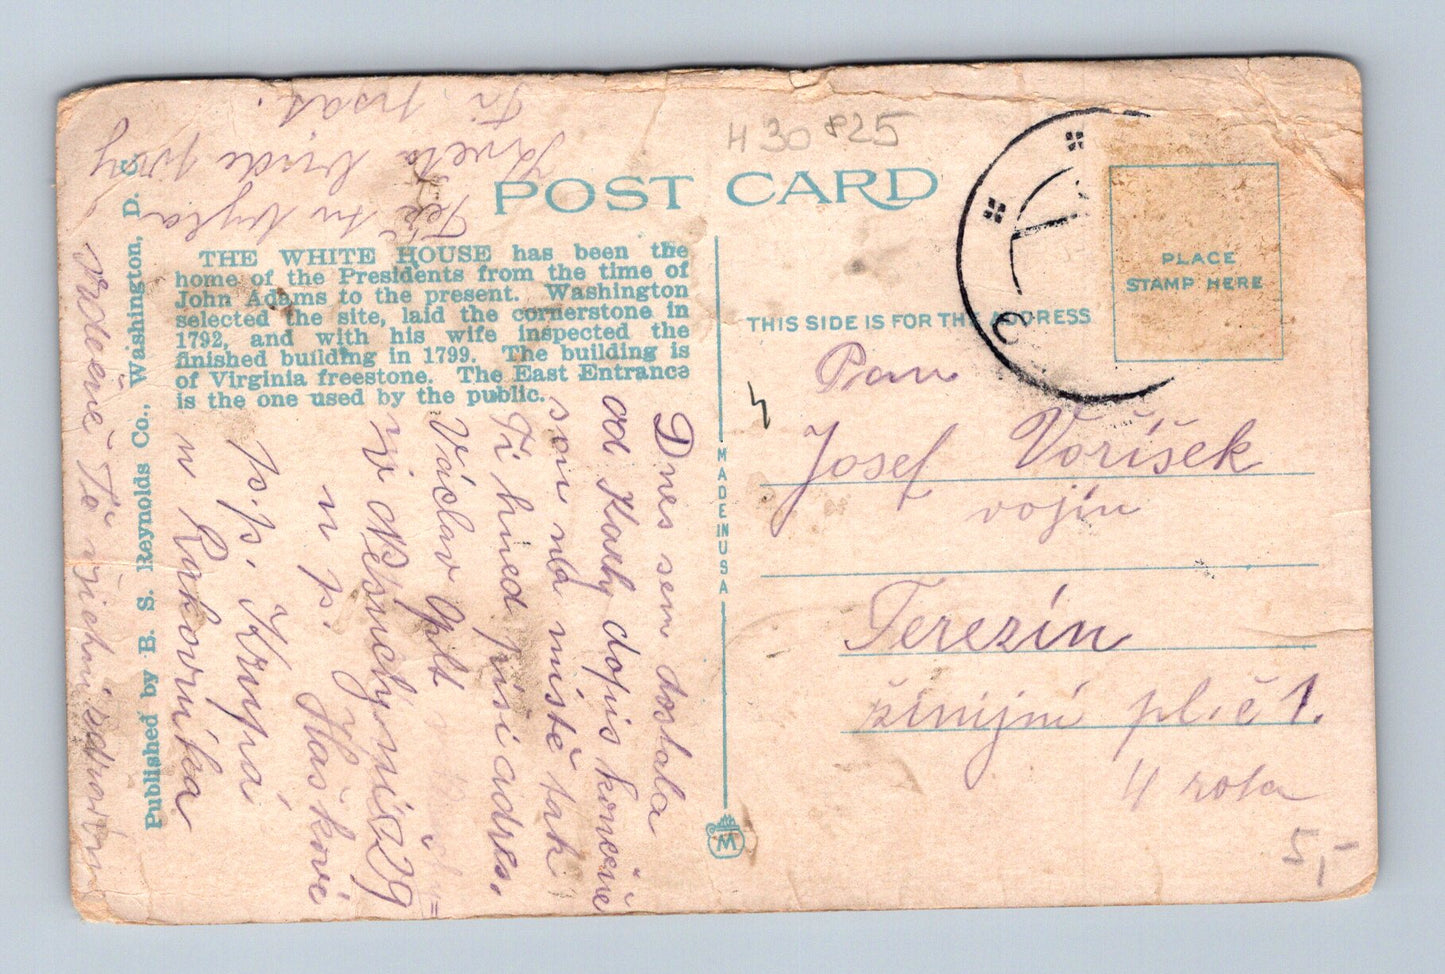 H 30 825
POST CARD
THE WHITE HOUSE has been the
home of the Presidents from the time of
John Adams to the present. Washington
selected the site, laid the cornerstone in
1792, and with his wife inspected the
finished building in 1799. The building is
of Virginia freestone. The East Entrance
is the one used by the public.
Published by B. S. Reynolds Co., Washington, D. C.
MADE IN USA
M
THIS SIDE IS FOR THE ADDRESS
PLACE
STAMP HERE
Pan
Josef Voříšek
vojín
Terezín
žinijní pl. č 1.
4 rota
5,-
Dnes sem dostala
od dopis konečně
na místě tak
Ti hned píši adres.
Václav
v p. Haškovi
p. p. Krupá
u Rakovníka
srdečně Tě
psat.